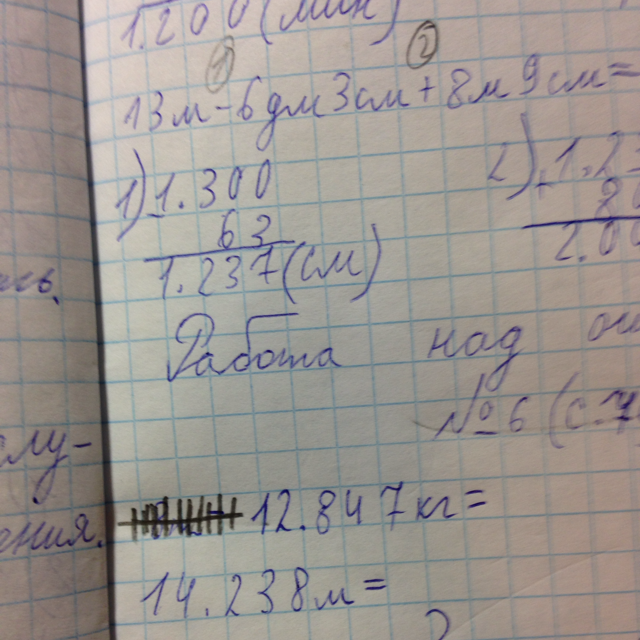 1.200 (мин)
① ②
13 м - 6 дм 3 см + 8 м 9 см =
1) 1.300 2)
63 80
1.237 (см) 2.00
Работа над
№ 6 (с. 7
лу-
ения.
12.847 кг =
14.238 м =